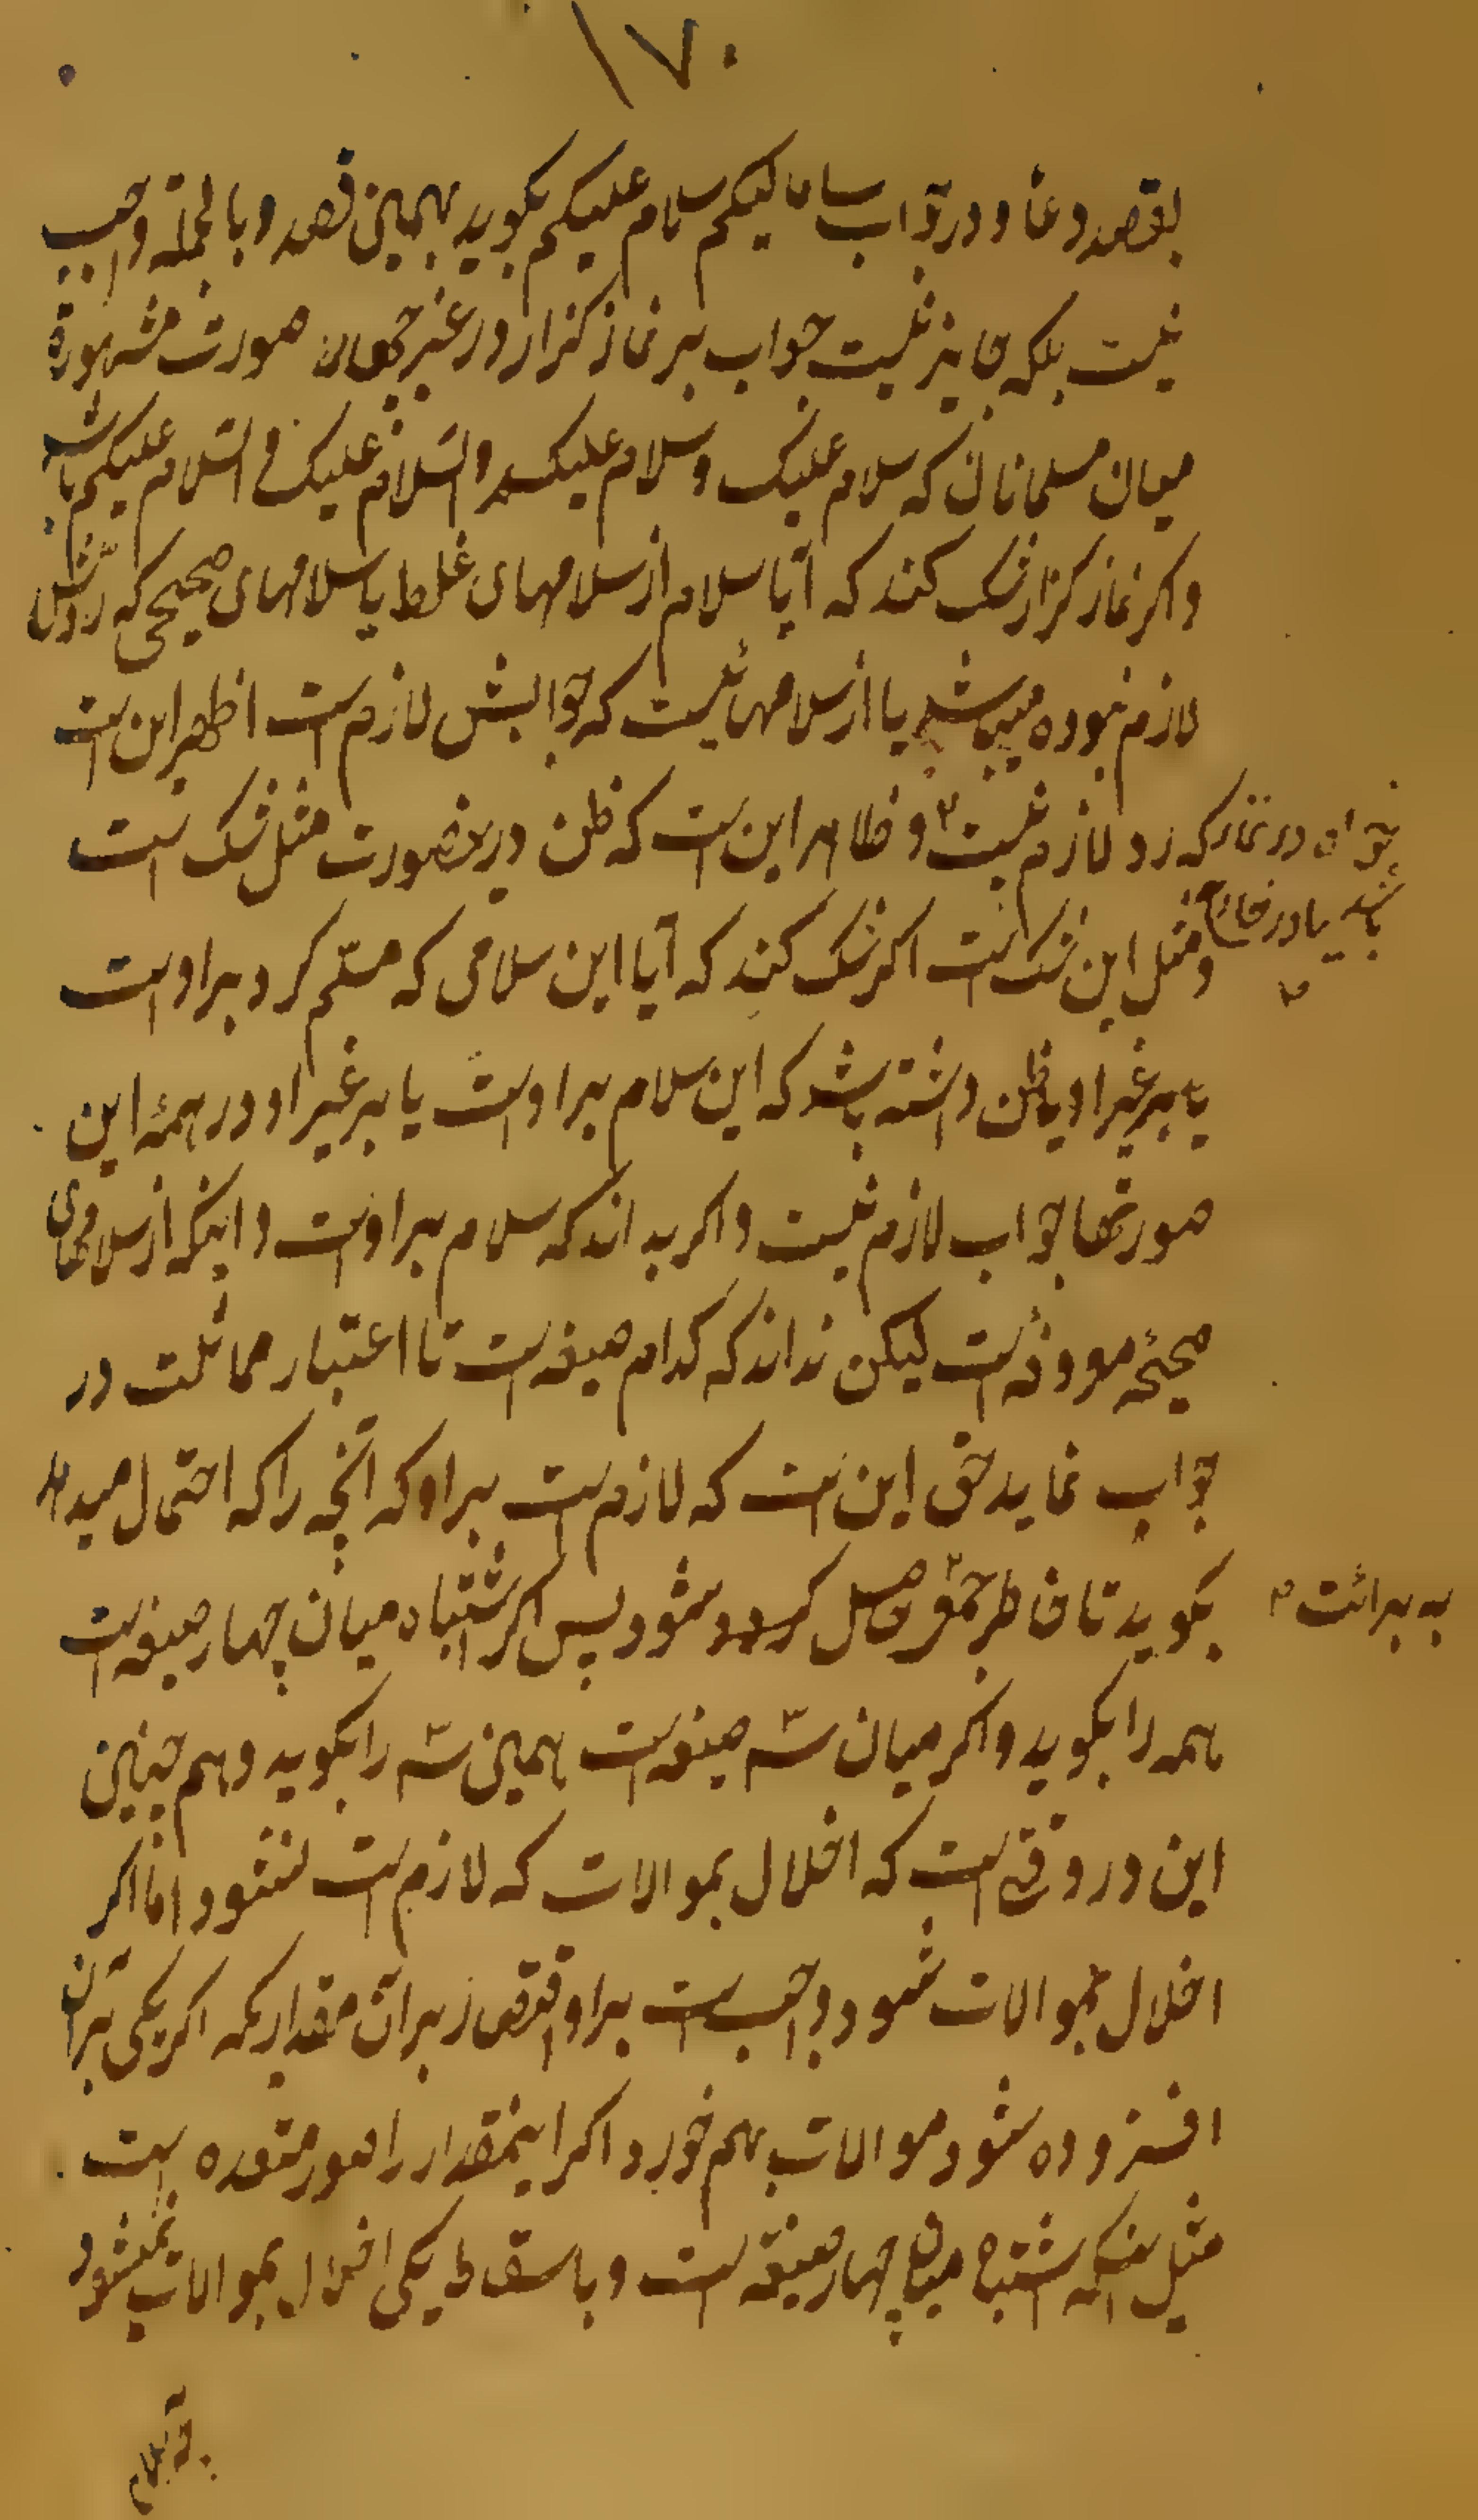 ۱۷۰
بقصد دعا و در جواب ساما لیکم سلام علیکم بکوید بهمین قصد و بالجمله واجب
نیست بلکه جایز نیست جواب بر نماز کزار در غیر چهار صورت مشهورة
میان مسلمانان که سلام علیک و سلام علیکم و السلام علیک و السلام علیکم باشد
و اکر نماز کزار شک کند که آیا سلام از سلامهای غلط یا سلامهای صحیحی که ردش
لازم نبوده میباشد یا از سلامهائیست که جوابش لازم است اظهر این است
که رد لازم نیست ۲ و ظاهر این است که ظن درینصورت مثل شک است
بخواه در نماز
باشد یا در خارج
۲
و مثل این شک است اکر شک کند که آیا این سلامی که مسلّم کرد بر اوست
یا بر غیر او یا ظن داشته باشد که این سلام بر اوست یا بر غیر او در همهٔ این
صورتها جواب لازم نیست و اکر بداند که سلام بر اوست و اینکه از سلامهای
صحیحه موظفه است لیکن نداند که کدام صیغه است تا اعتبار مماثلت در
جواب نماید حق این است که لازم است بر او که آنچه را که احتمال میدهد
بکوید تا خاطر جمعی ۲ حاصل شود پس اکر اشتباه میان چهار صیغه است
به برائت ۲
همه را بکوید و اکر میان سه صیغه است همین سه را بکوید و هم چنین
این در وقتی است که اخلال بموالات که لازم است نشود اما اکر
اخلال بموالات شود واجب است بر او اقتصار بر آن مقداریکه اکر یکی بر آن
افزوده شود موالات بهم خورد و اکر اینمقدار را صور متعدده است
مثل اینکه اشتباه میان چهار صیغه است و باسقاط یکی اخلال بموالات نمیشود